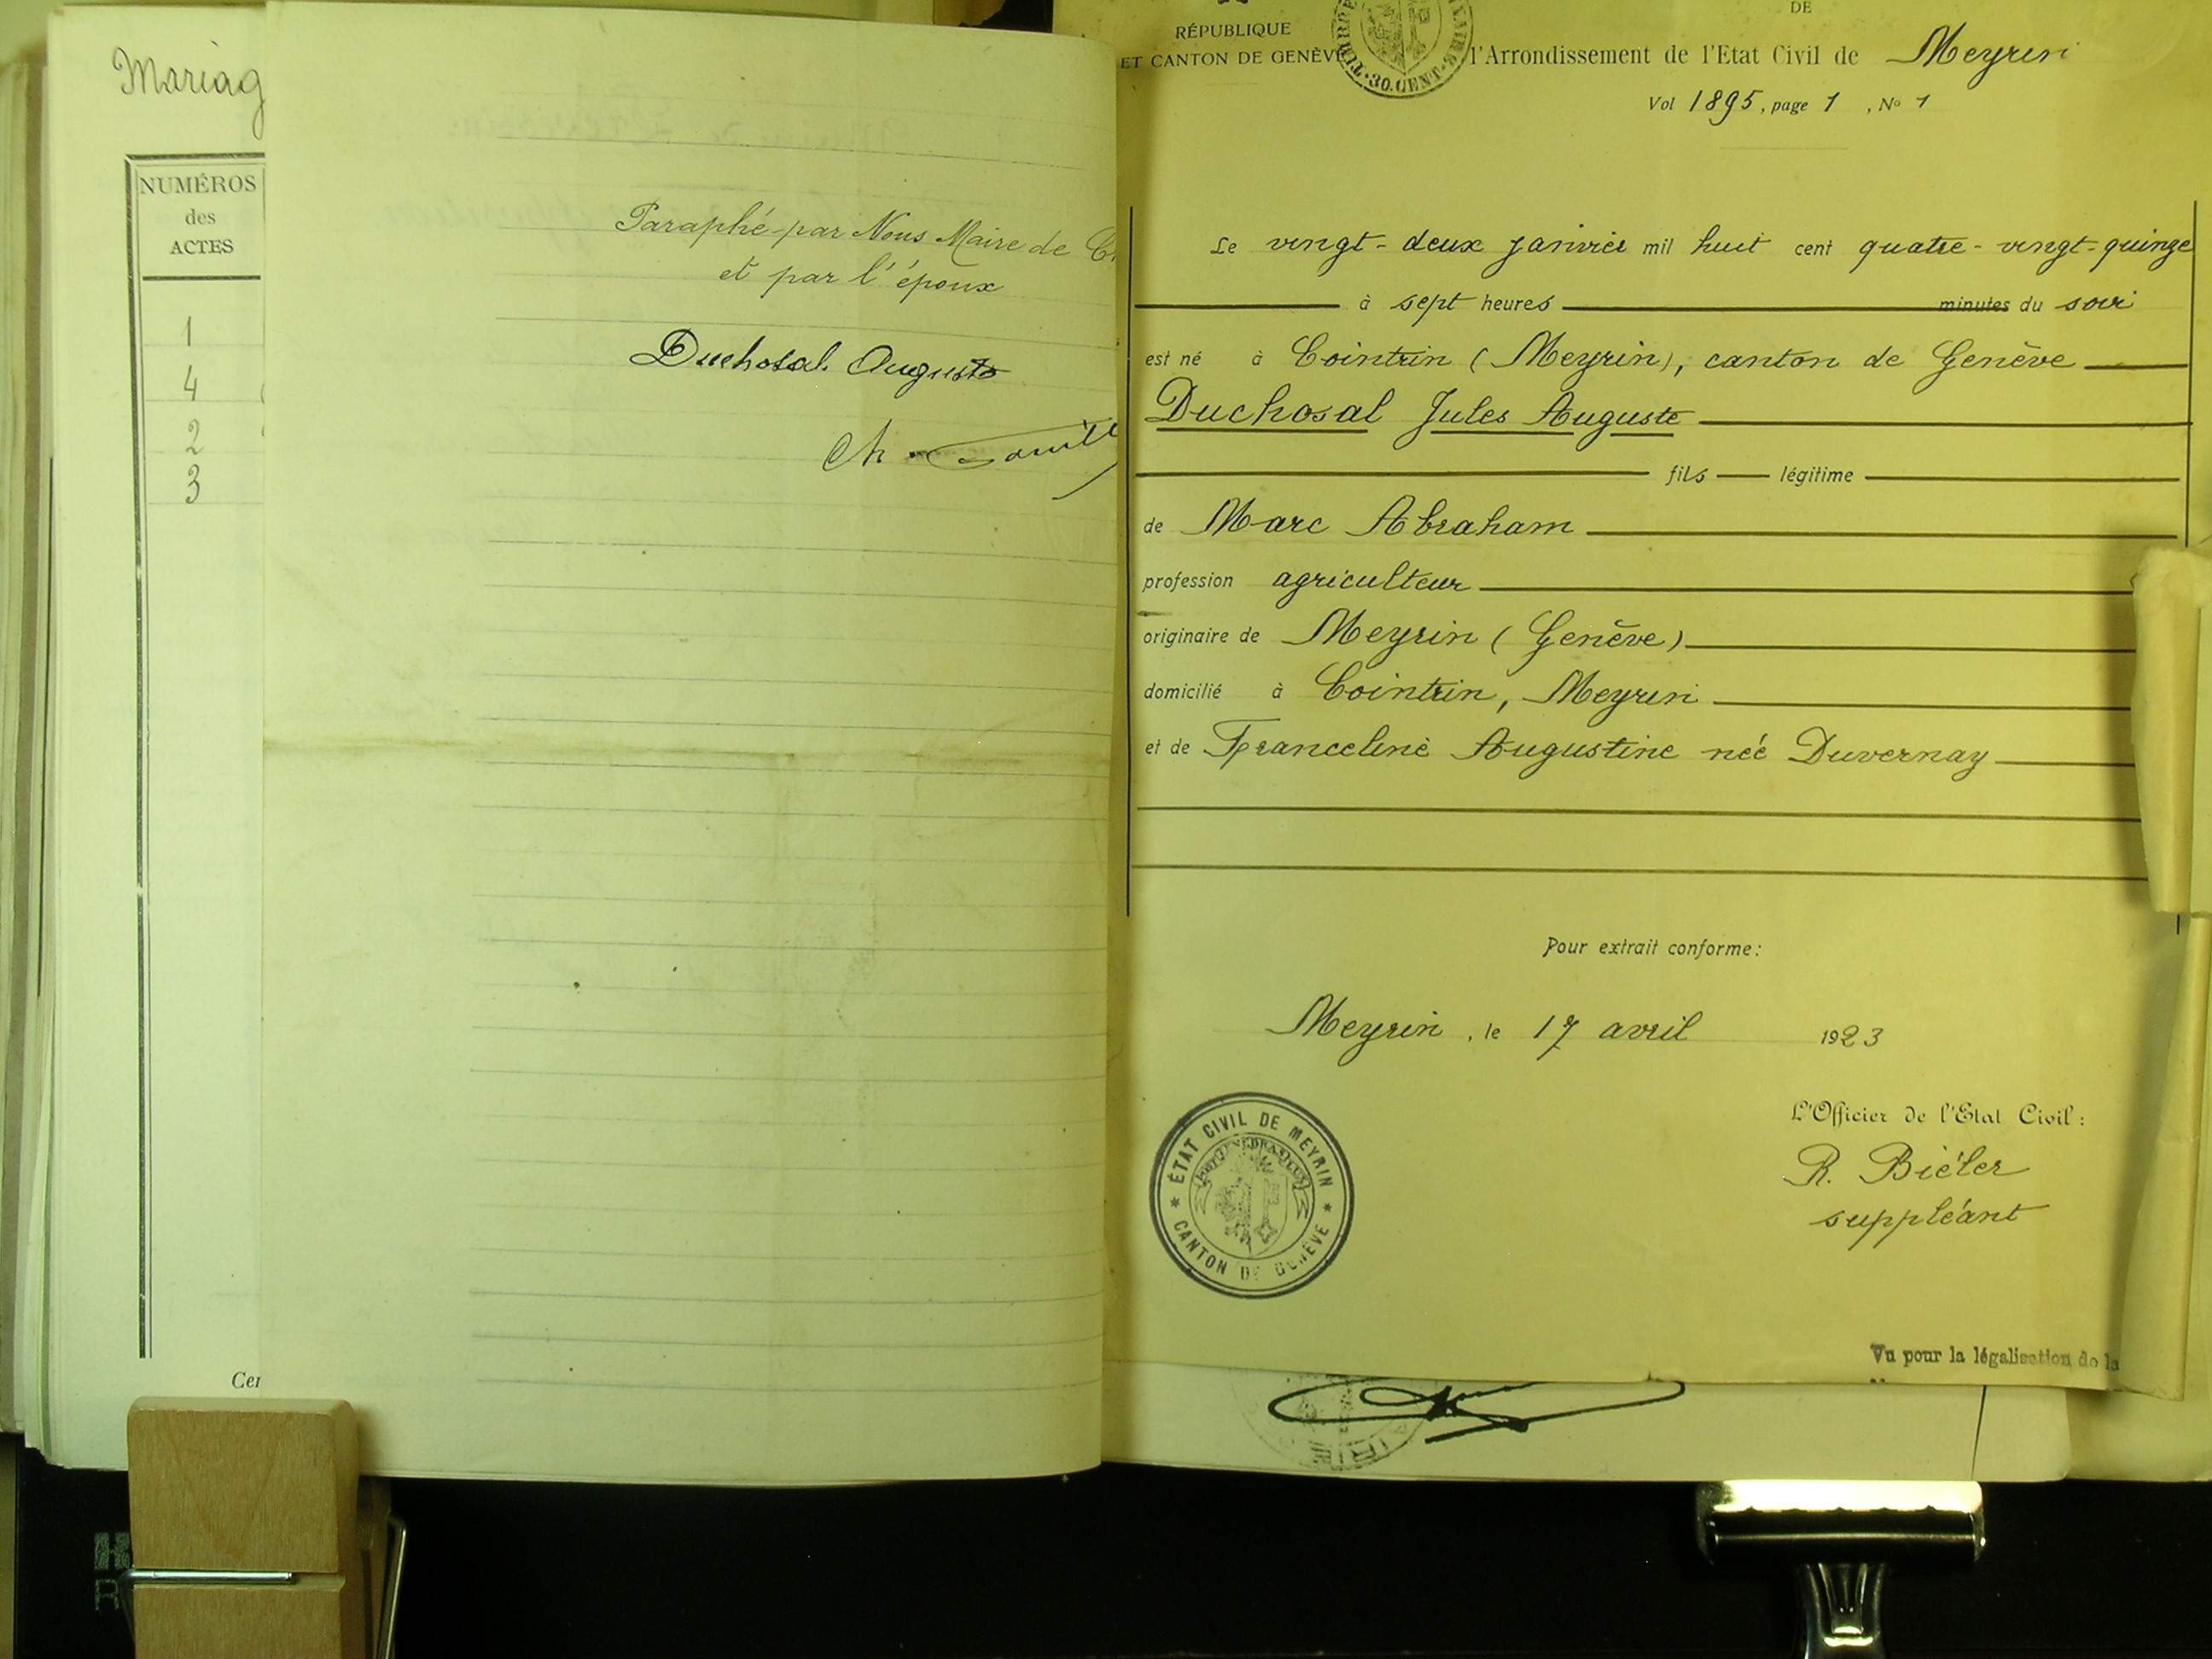 Mariag
NUMÉROS
des
ACTES
1
4
2
3
Cer
Paraphé par Nous Maire de
et par l'époux
Duchosal Auguste
Ch.
RÉPUBLIQUE
ET CANTON DE GENÈVE
30.CENT.
DE
l'Arrondissement de l'Etat Civil de Meyrin
Vol 1895, page 1, No 1
Le vingt-deux janvier mil huit cent quatre-vingt-quinze
à sept heures minutes du soir
est né à Cointrin (Meyrin), canton de Genève
Duchosal Jules Auguste
fils légitime
de Marc Abraham
profession agriculteur
originaire de Meyrin (Genève)
domicilié à Cointrin, Meyrin
et de Franceline Augustine née Duvernay
Pour extrait conforme:
Meyrin, le 17 avril 1923
L'Officier de l'Etat Civil:
R. Biéler
suppléant
ÉTAT CIVIL DE MEYRIN
CANTON DE GENÈVE
Vu pour la légalisation de la